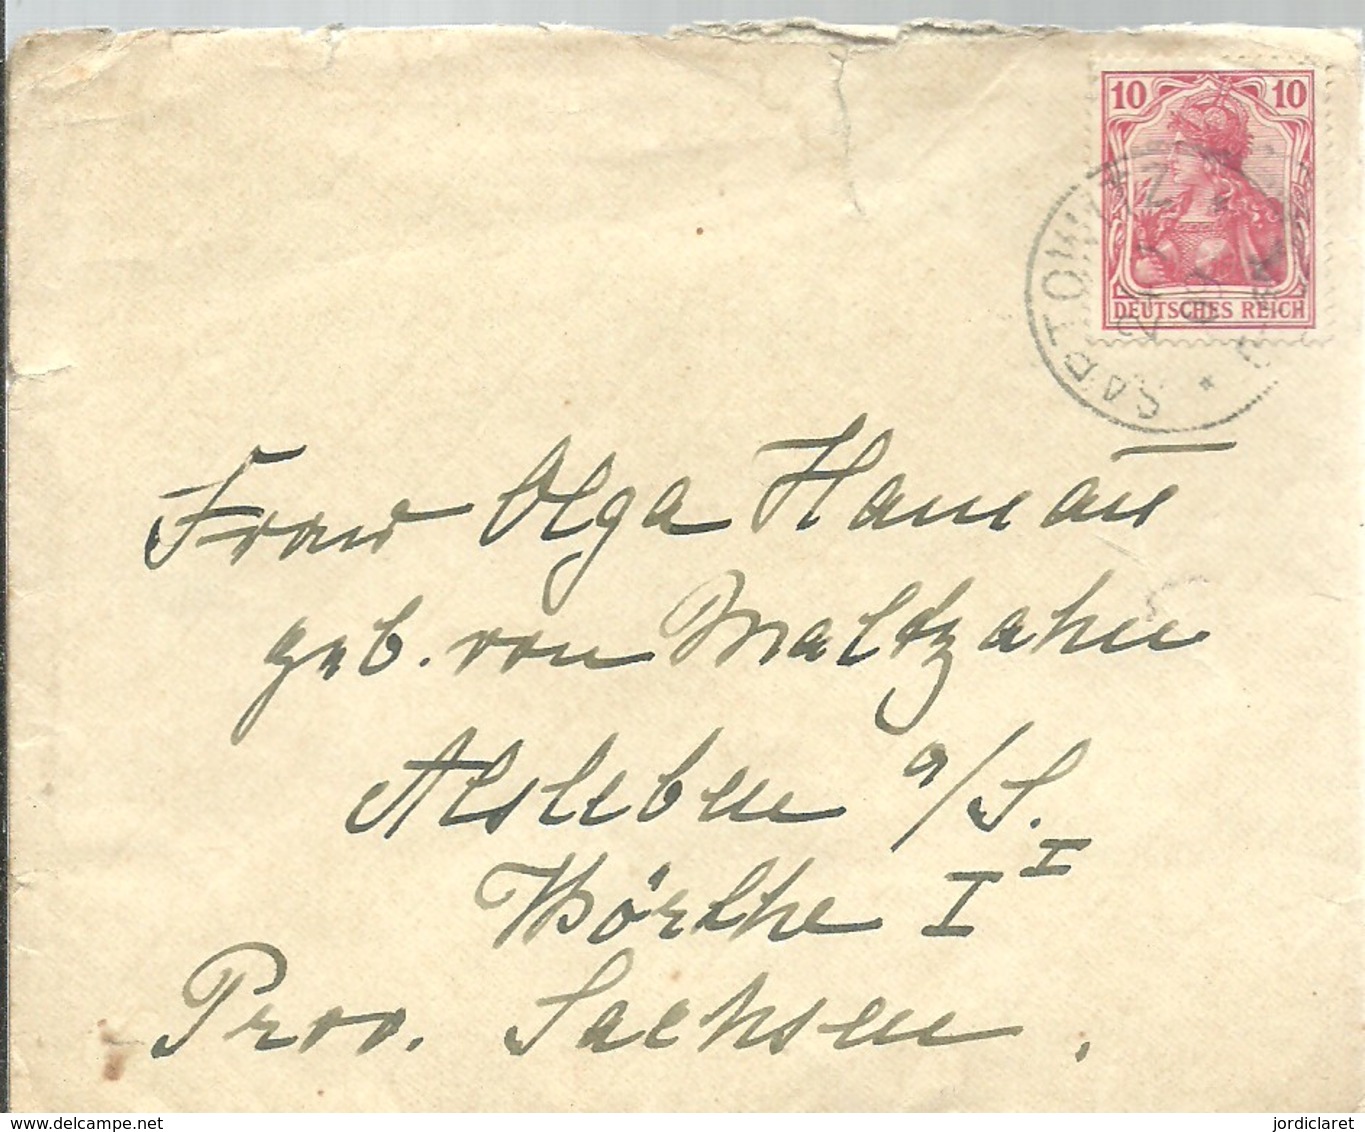 10 10
DEUTSCHES REICH
SARTOWITZ
Frau Olga Hanau
geb. von Maltzahn
Alsleben a/S.
Wörthe I I
Prov. Sachsen.
www.delcampe.net
jordiclaret